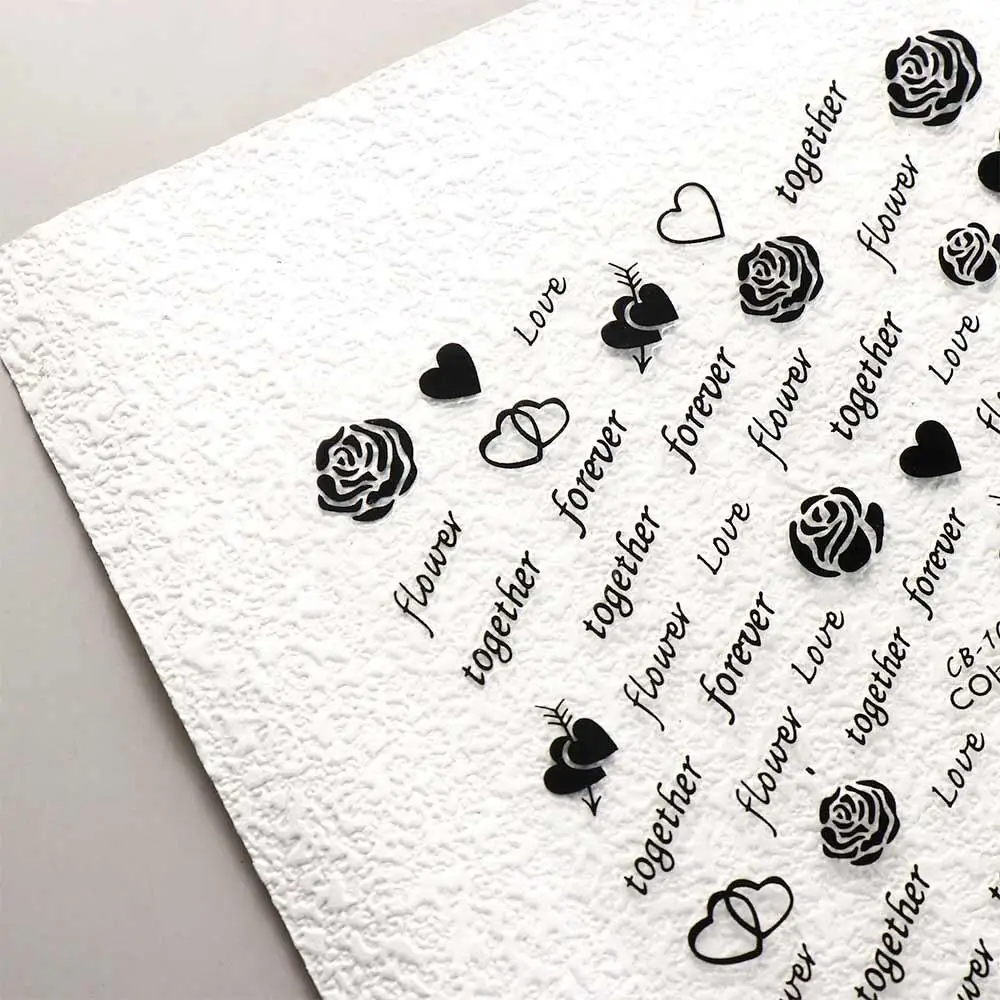 together
flower
Love
together
Love
flower
forever
forever
flower
together
Love
together
forever
flower
forever
Love
together
flower
Love
together
together